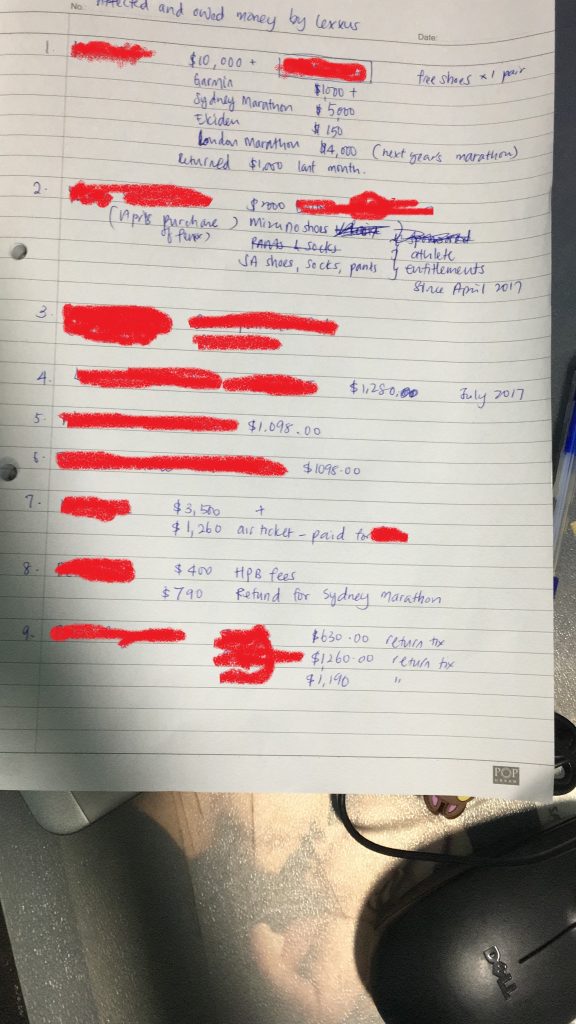 No.
Affected and owed money by Lexxus
Date:
1. $10,000 + free shoes x 1 pair
Garmin $1000 +
Sydney Marathon $5000
Ekiden $150
London Marathon $4,000 (next year's marathon)
Returned $1,000 last month.
2. $2000
(April purchase ) Mizuno shoes } sponsored
of funx) Pants & socks athlete
SA shoes, socks, pants entitlements
Since April 2017
3.
4. $1,280.00 July 2017
5. $1,098.00
6. $1098.00
7. $3,500 +
$1,260 air ticket - paid for
8. $400 HPB fees
$790 Refund for Sydney Marathon
9. $630.00 return tix
$1260.00 return tix
$1,190 "
POP
DELL